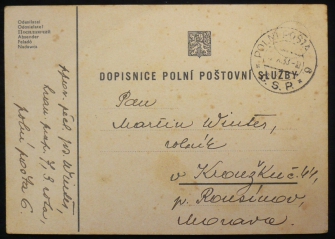 Odesílatel
Odosielateľ
Absender
Feladó
POLNÍ POŠTA 6
S.P.
DOPISNICE POLNÍ POŠTOVNÍ SLUŽBY
Pan
Martin Winter,
rolník
v Kronžku č. 44,
p. Rousínov,
Morava.
Winter,
polní pošta 6.